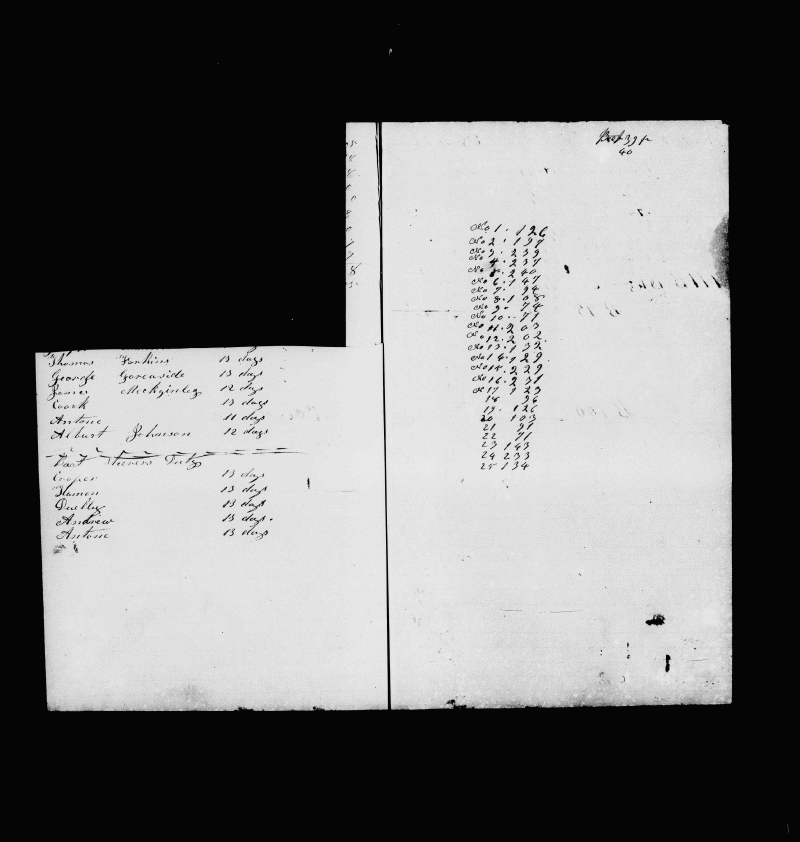 Thomas Jenkins 13 days
George Goreaside 13 days
James Meckginley 12 days
Coock 13 days
Antone 11 days
Alburt Johanson 12 days
Cooper 13 days
Hamon 13 days
Duelly 13 days
Andrew 13 days.
Antone 13 days
40
No 1. 126
No 2. 197
No 3. 239
No 4. 237
No 5. 240
No 6. 147
No 7. 94
No 8. 108
No 9. 74
No 10. 71
No 11. 203
No 12. 202.
No 13. 132
No 14. 129
No 15. 229
No 16. 231
No 17 123
18 96
19. 126
20 103
21 91
22 71
23 143
24 233
25 134